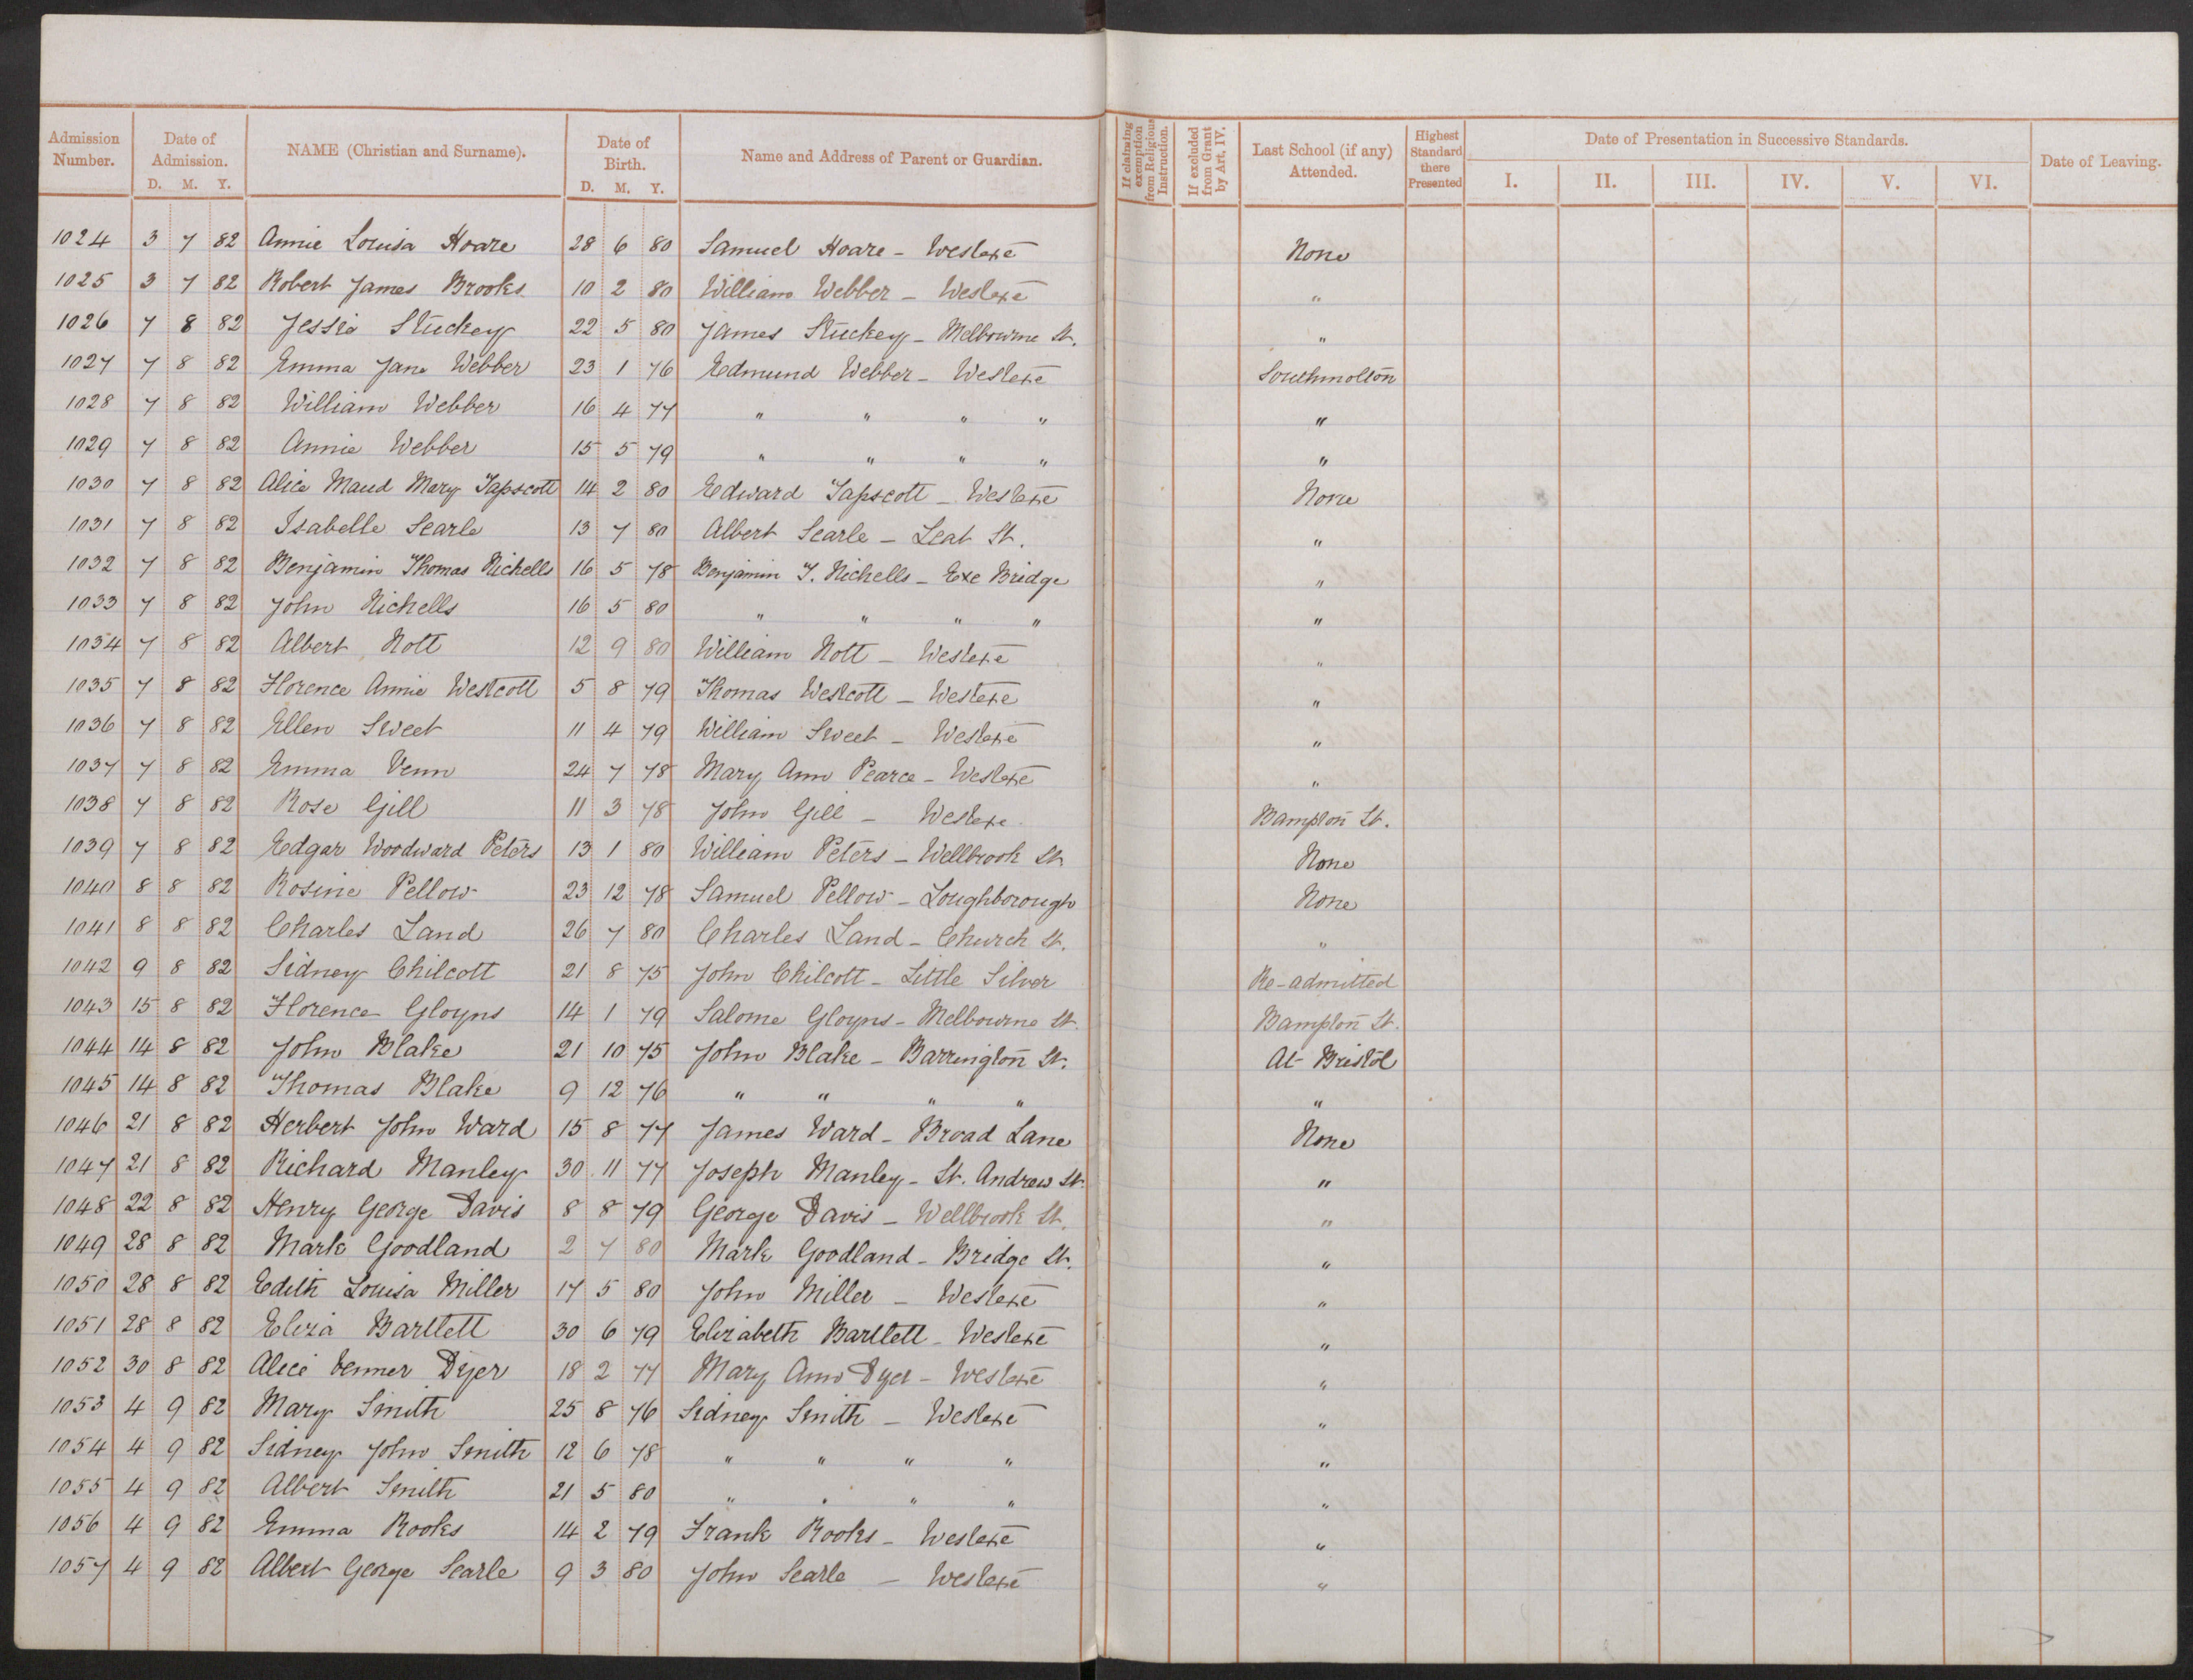 Admission Number. Date of Admission. NAME (Christian and Surname). Date of Birth. Name and Address of Parent or Guardian. If claiming exemption from Religious Instruction. If excluded from Grant by Art. IV. Last School (if any) Attended. Highest Standard there Presented Date of Presentation in Successive Standards. Date of Leaving.
D. M. Y. D. M. Y. I. II. III. IV. V. VI.
1024 3 7 82 Annie Louisa Hoare 28 6 80 Samuel Hoare - Westexe None
1025 3 7 82 Robert James Brooks 10 2 80 William Webber - Westexe "
1026 7 8 82 Jessie Stuckey 22 5 80 James Stuckey - Melbourne St. "
1027 7 8 82 Emma Jane Webber 23 1 76 Edmund Webber - Westexe Southmolton
1028 7 8 82 William Webber 16 4 77 " " " " "
1029 7 8 82 Annie Webber 15 5 79 " " " " "
1030 7 8 82 Alice Maud Mary Tapscott 14 2 80 Edward Tapscott - Westexe None
1031 7 8 82 Isabelle Searle 13 7 80 Albert Searle - Leat St. "
1032 7 8 82 Benjamin Thomas Nichells 16 5 78 Benjamin T. Nichells - Exe Bridge "
1033 7 8 82 John Nichells 16 5 80 " " " " "
1034 7 8 82 Albert Nott 12 9 80 William Nott - Westexe "
1035 7 8 82 Florence Annie Westcott 5 8 79 Thomas Westcott - Westexe "
1036 7 8 82 Ellen Sweet 11 4 79 William Sweet - Westexe "
1037 7 8 82 Emma Venn 24 7 78 Mary Ann Pearce - Westexe "
1038 7 8 82 Rose Gill 11 3 78 John Gill - Westexe Bampton St.
1039 7 8 82 Edgar Woodward Peters 13 1 80 William Peters - Wellbrook St. None
1040 8 8 82 Rosine Pellow 23 12 78 Samuel Pellow - Loughborough None
1041 8 8 82 Charles Land 26 7 80 Charles Land - Church St. "
1042 9 8 82 Sidney Chilcott 21 8 75 John Chilcott - Little Silver Re-admitted
1043 15 8 82 Florence Gloyns 14 1 79 Salome Gloyns - Melbourne St. Bampton St.
1044 14 8 82 John Blake 21 10 75 John Blake - Barrington St. At Bristol
1045 14 8 82 Thomas Blake 9 12 76 " " " " "
1046 21 8 82 Herbert John Ward 15 8 77 James Ward - Broad Lane None
1047 21 8 82 Richard Manley 30 11 77 Joseph Manley - St. Andrew St. "
1048 22 8 82 Henry George Davis 8 8 79 George Davis - Wellbrook St. "
1049 28 8 82 Mark Goodland 2 7 80 Mark Goodland - Bridge St. "
1050 28 8 82 Edith Louisa Miller 17 5 80 John Miller - Westexe "
1051 28 8 82 Eliza Bartlett 30 6 79 Elizabeth Bartlett - Westexe "
1052 30 8 82 Alice Venner Dyer 18 2 77 Mary Ann Dyer - Westexe "
1053 4 9 82 Mary Smith 25 8 76 Sidney Smith - Westexe "
1054 4 9 82 Sidney John Smith 12 6 78 " " " " "
1055 4 9 82 Albert Smith 21 5 80 " " " " "
1056 4 9 82 Emma Rooks 14 2 79 Frank Rooks - Westexe "
1057 4 9 82 Albert George Searle 9 3 80 John Searle - Westexe "